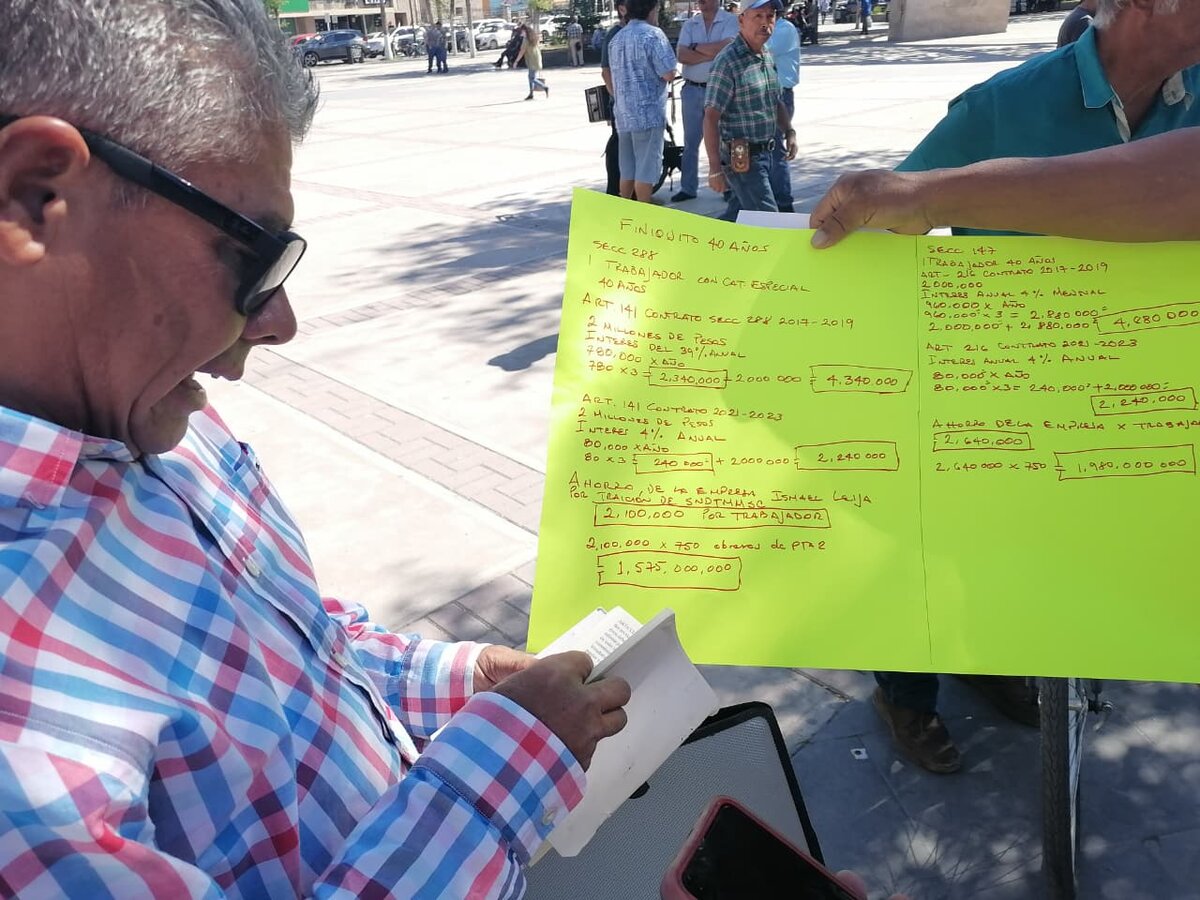 FINIQUITO 40 AÑOS
SECC 288
1 TRABAJADOR CON CAT. ESPECIAL
40 AÑOS
ART 141 CONTRATO SECC 288 2017-2019
2 MILLONES DE PESOS
INTERES DEL 39% ANUAL
780,000 X AÑO
780 X 3 = 2,340,000 + 2000 000 = 4,340,000
ART. 141 CONTRATO 2021-2023
2 MILLONES DE PESOS
INTERES 4% ANUAL
80,000 X AÑO
80 X 3 = 240 000 + 2000000 = 2,240 000
AHORRO DE LA EMPRESA ISMAEL LEIJA
POR TRAICION DE SNDTMMSC
2,100,000 POR TRABAJADOR
2,100,000 X 750 obreros de PTA 2
= 1,575,000,000
SECC 147
1 TRABAJADOR 40 AÑOS
ART- 216 CONTRATO 2017-2019
2 000,000
INTERES ANUAL 4% MENSUAL
960,000 X AÑO
960,000 X 3 = 2,880 000 =
2,000,000 + 2,880,000 = 4,880 000
ART 216 CONTRATO 2021-2023
INTERES ANUAL 4% ANUAL
80,000 X AÑO
80,000 X 3 = 240,000 + 2,000,000 =
2,240,000
AHORRO DE LA EMPRESA X TRABAJA
2,640,000
2,640 000 X 750 = 1,980,000 000